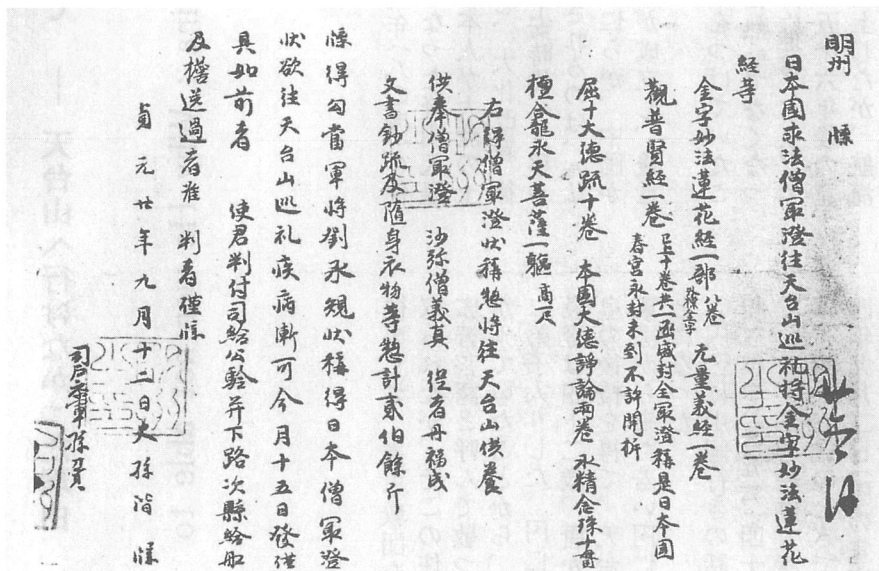 明州 牒
日本國求法僧最澄往天台山巡礼将金字妙法蓮花
経等
金字妙法蓮花経一部 八卷 外標金字 无量義経一卷
觀普賢経一卷 已上十卷共一函盛封全最澄稱是日本國
春宮永封未到不許開折
屈十大德疏十卷 本國大德諍論兩卷 水精念珠十貫
檀龕水天菩薩一軀 高一尺
右得僧最澄狀稱惣将往天台山供養
供奉僧最澄 沙弥僧義真 従者丹福成
文書鈔疏及随身衣物等惣計貳伯餘斤
牒得勾當軍将劉承規狀稱得日本僧最澄
狀欲往天台山巡礼疾病漸可今月十五日發謹
具如前者 使君判付司給公驗并下路次縣給舡
及擔送過者准判者謹牒
貞元廿年九月十二日史孫階牒
司戶參軍孫萬